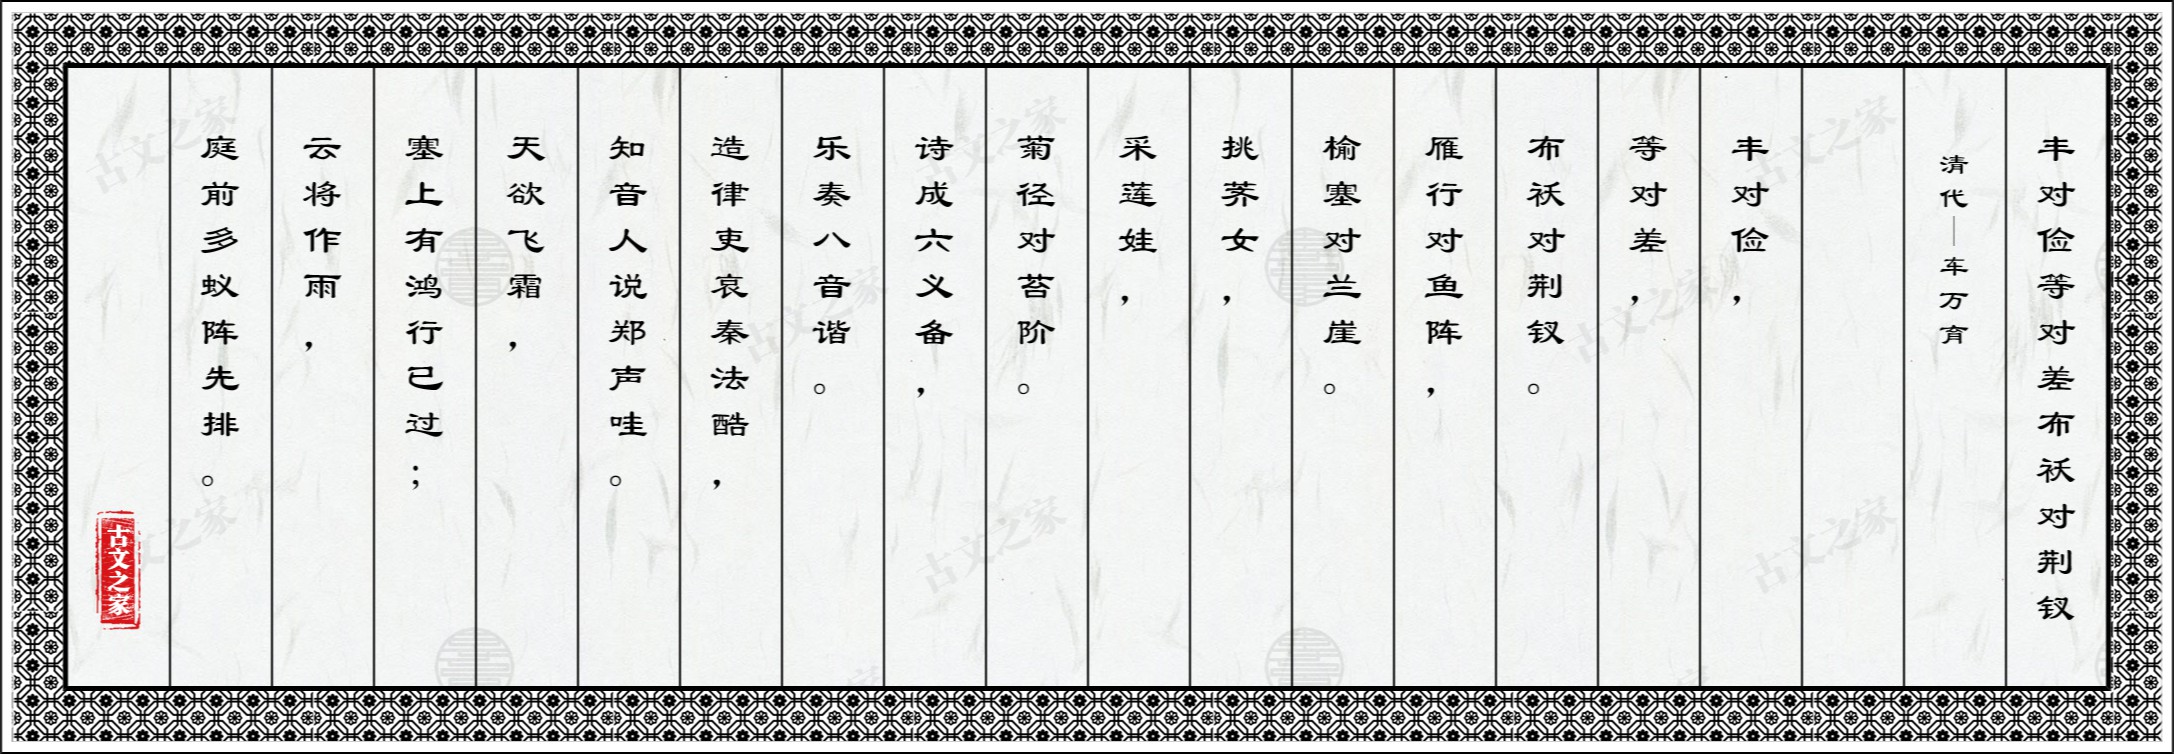 丰对俭等对差布袄对荆钗
清代—车万育
丰对俭，
等对差，
布袄对荆钗。
雁行对鱼阵，
榆塞对兰崖。
挑荠女，
采莲娃，
菊径对苔阶。
诗成六义备，
乐奏八音谐。
造律吏哀秦法酷，
知音人说郑声哇。
天欲飞霜，
塞上有鸿行已过；
云将作雨，
庭前多蚁阵先排。
古文之家